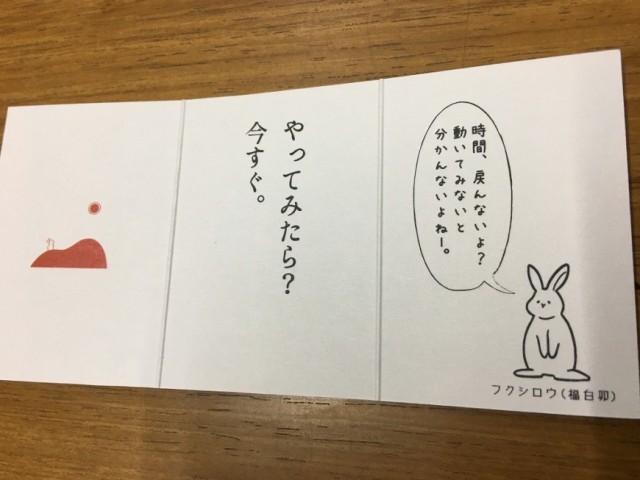 時間、戻んないよ？
動いてみないと
分かんないよねー。
フクシロウ（福白卯）
やってみたら？
今すぐ。